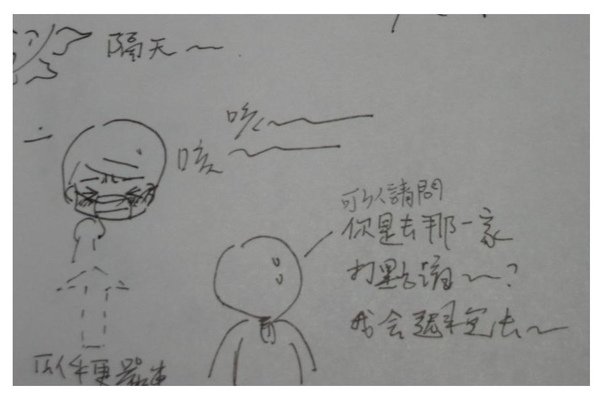 隔天～
咳～
咳～
可以請問
你是去那一家
打點滴～?
我会遲定去～